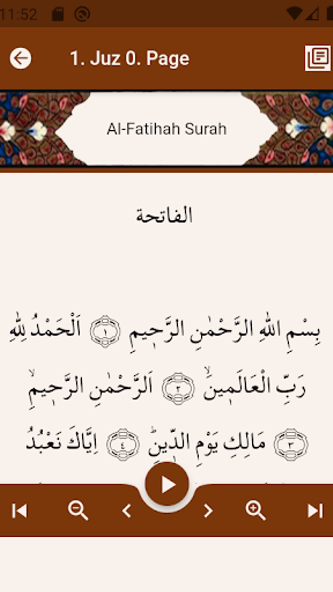 11:52
1. Juz 0. Page
Al-Fatihah Surah
الفاتحة
بِسْمِ اللهِ الرَّحْمٰنِ الرَّحٖيمِ ﴿١﴾ اَلْحَمْدُ لِلّٰهِ
رَبِّ الْعَالَمٖينَۙ ﴿٢﴾ اَلرَّحْمٰنِ الرَّحٖيمِۙ
﴿٣﴾ مَالِكِ يَوْمِ الدّٖينِؕ ﴿٤﴾ اِيَّاكَ نَعْبُدُ